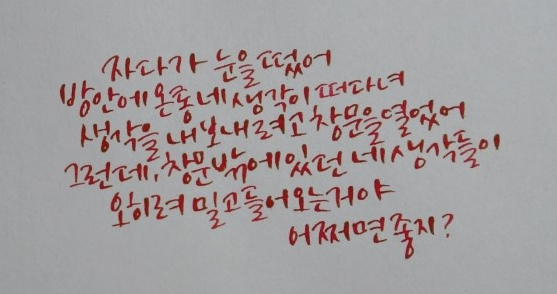 자다가 눈을 떴어
방안에 온통 네 생각이 떠다녀
생각을 내보내려고 창문을 열었어
그런데, 창문밖에 있던 네 생각들이
오히려 밀고 들어오는거야
어쩌면 좋지?